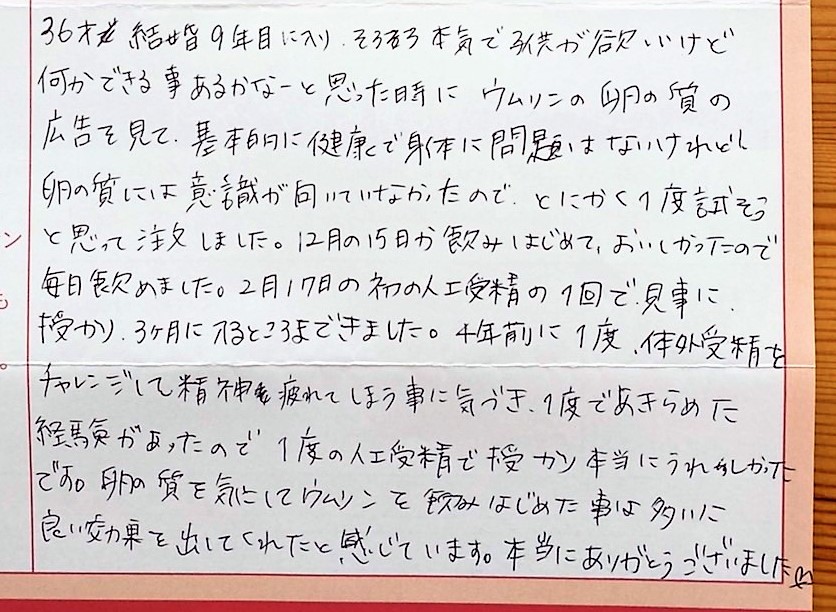 36才 結婚9年目に入り、そろそろ本気で子供が欲しいけど
何かできる事あるかなーと思った時に ウムリンの 卵の質の
広告を見て、基本的に健康で身体に問題はないけれども
卵の質には意識が向いていなかったので、とにかく1度試そう
と思って注文しました。12月の15日から飲みはじめて、おいしかったので
ン
毎日飲めました。2月17日の初の人工受精の1回で、見事に
も
授かり、3ヶ月に入るところまできました。4年前に1度、体外受精を
。
チャレンジして精神も疲れてしまう事に気づき、1度であきらめた
経験があったので 1度の人工受精で授かり本当にうれしかった
です。卵の質を気にしてウムリンを飲みはじめた事は多いに
良い効果を出してくれたと感じています。本当にありがとうございました♡